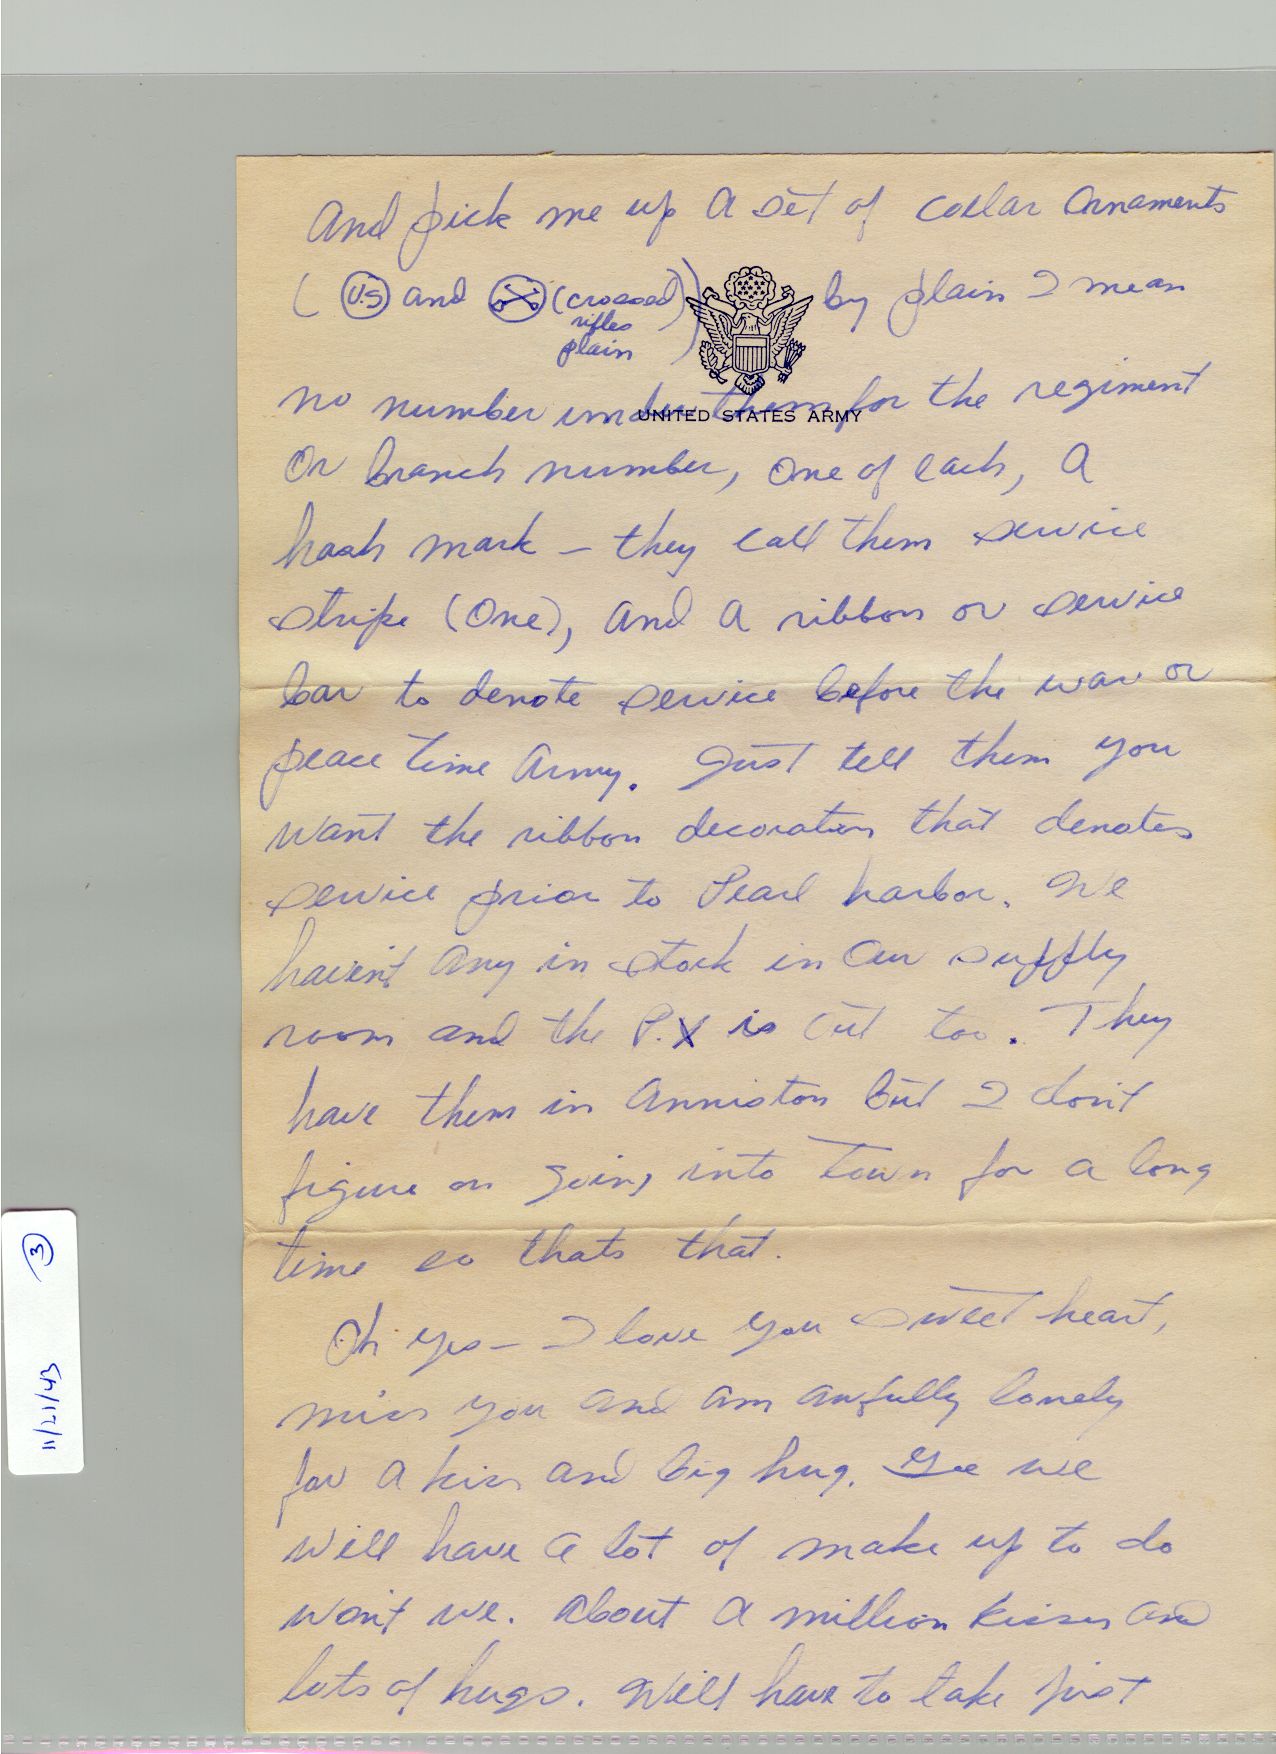 and pick me up a set of collar ornaments
( U.S and (crossed) ) by plain I mean
rifles
plain
UNITED STATES ARMY
no number under them for the regiment
or branch number, one of each, a
hash mark – they call them service
stripe (one), and a ribbon or service
bar to denote service before the war or
peace time Army. Just tell them you
want the ribbon decoration that denotes
service prior to Pearl harbor. We
haven't any in stock in our supply
room and the P.X is out too. They
have them in Anniston but I don't
figure on going into town for a long
time so thats that.
Oh yes – I love you sweet heart,
miss you and am awfully lonely
for a kiss and big hug. Gee we
will have a lot of make up to do
won't we. About a million kisses and
lots of hugs. Will have to take first
11/21/43 3